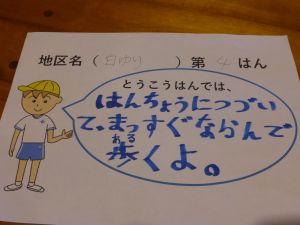 地区名（白ゆり）第4はん
とうこうはんでは、
はんちょうにつづい
て、まっすぐならんで
歩くよ。
ある